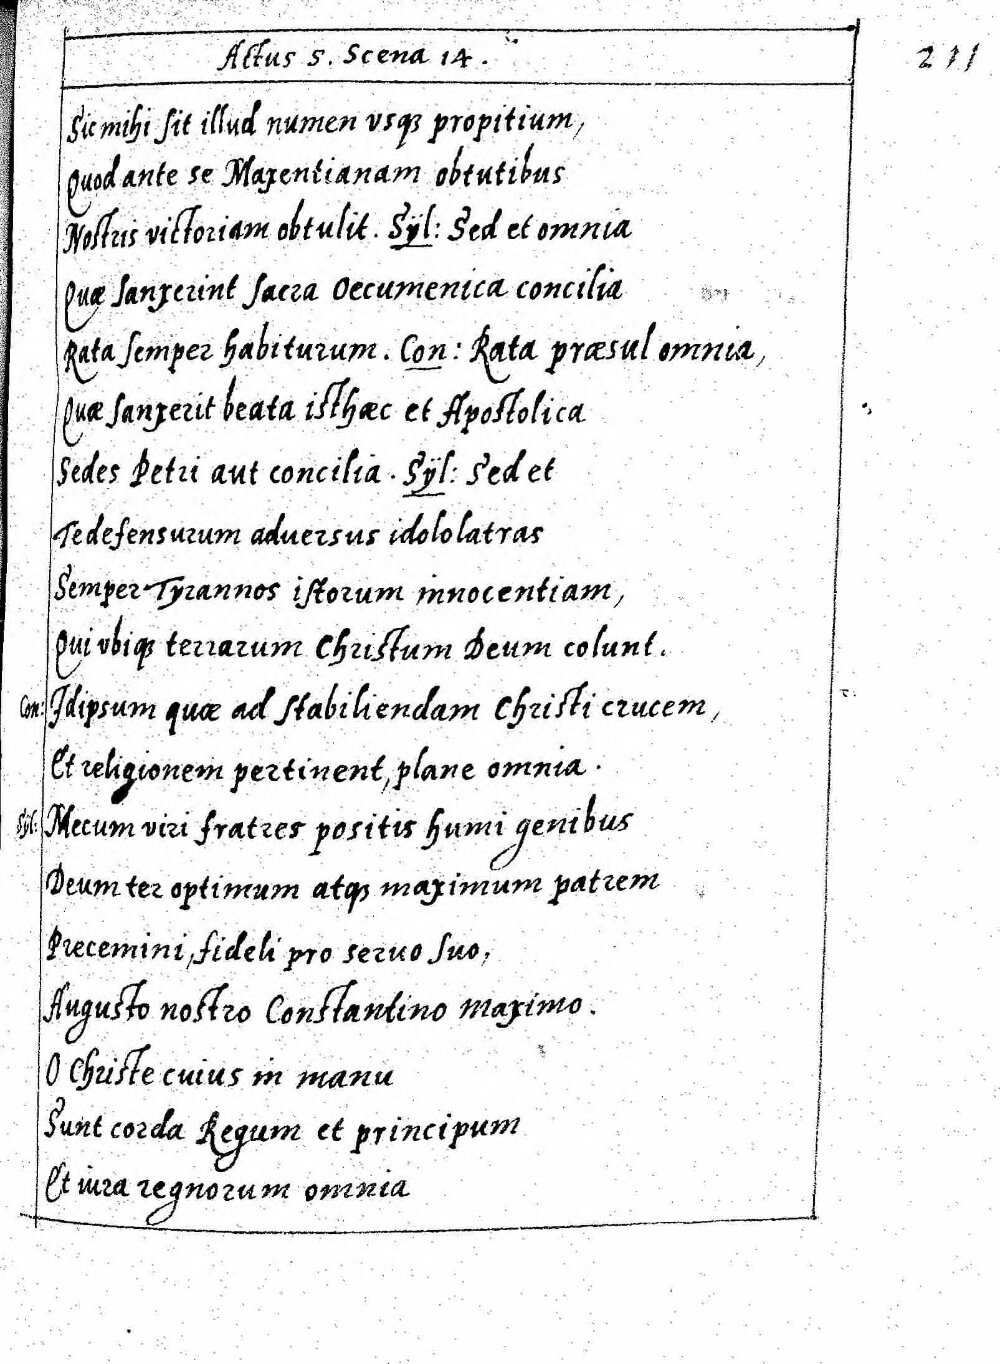 Actus 5. Scena 14.
211
Sic mihi sit illud numen vsqꝫ propitium,
Quod ante se Maxentianam obtutibus
Nostris victoriam obtulit. Sÿl: Sed et omnia
Quæ sanxerint sacra Oecumenica concilia
Rata semper habiturum. Con: Rata præsul omnia,
Quæ sanxerit beata isthæc et Apostolica
Sedes Petri aut concilia. Sÿl: Sed et
Te defensurum aduersus idololatras
Semper Tyrannos istorum innocentiam,
Qui vbiqꝫ terrarum Christum Deum colunt.
Con: Idipsum quæ ad stabiliendam Christi crucem,
Et religionem pertinent, plane omnia.
Sÿl: Mecum viri fratres positis humi genibus
Deum ter optimum atqꝫ maximum patrem
Precemini, fideli pro seruo suo,
Augusto nostro Constantino maximo.
O Christe cuius in manu
Sunt corda Regum et principum
Et iura regnorum omnia